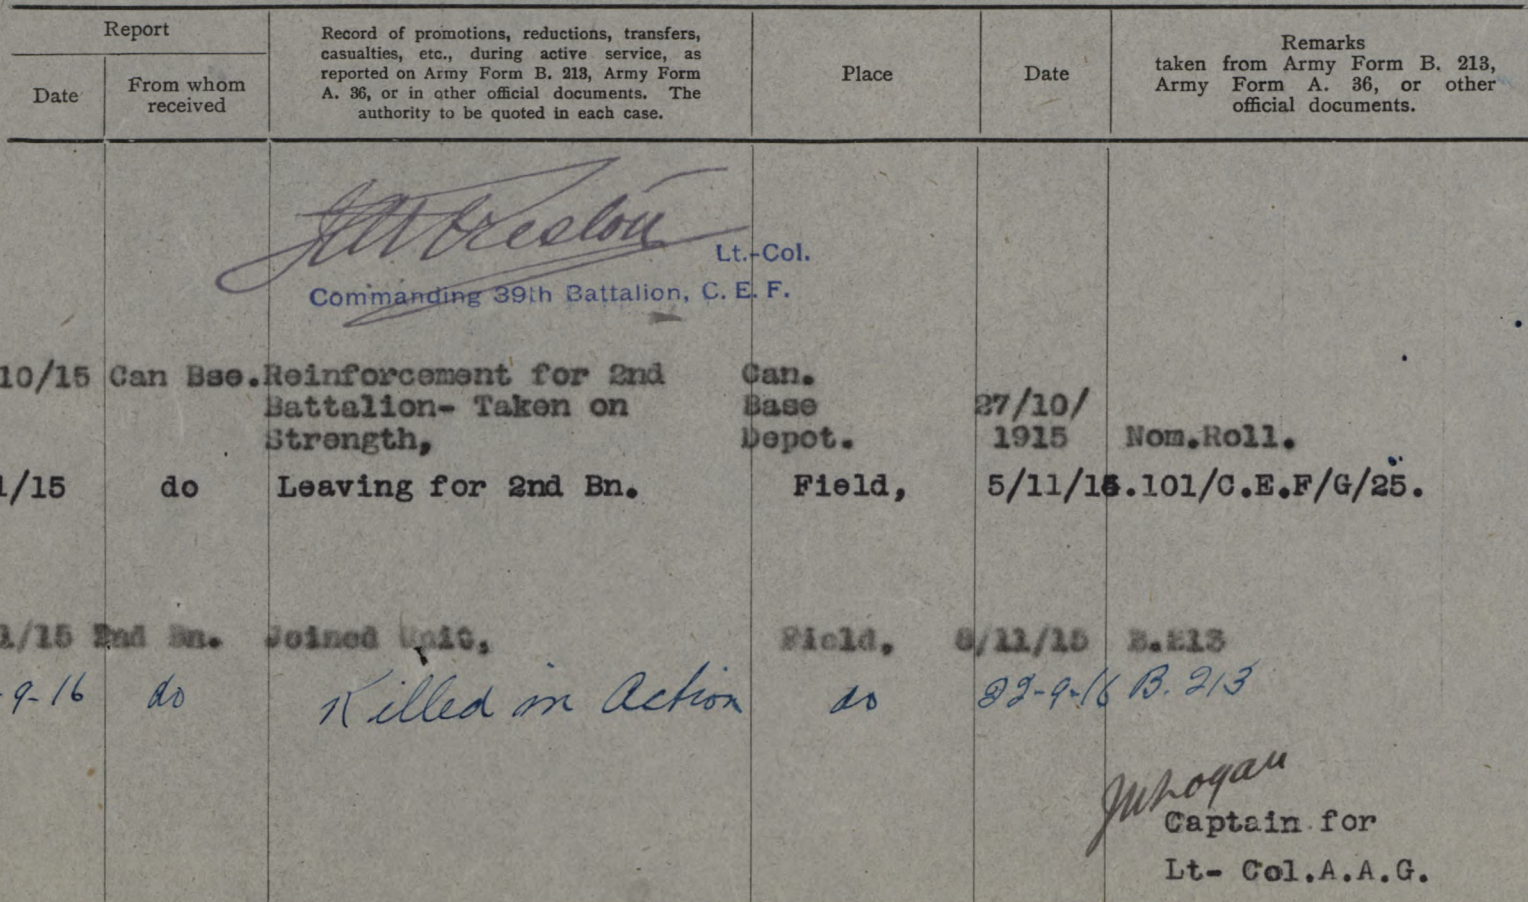 Report
Record of promotions, reductions, transfers,
casualties, etc., during active service, as
reported on Army Form B. 213, Army Form
A. 36, or in other official documents. The
authority to be quoted in each case.
Place
Date
Remarks
taken from Army Form B. 213,
Army Form A. 36, or other
official documents.
Date
From whom
received
Preston
Lt.-Col.
Commanding 39th Battalion, C. E. F.
10/15 Can Bse. Reinforcement for 2nd Can.
Battalion- Taken on Base 27/10/
Strength, Depot. 1915 Nom.Roll.
1/15 do Leaving for 2nd Bn. Field, 5/11/15.101/C.E.F/G/25.
1/15 2nd Bn. Joined Unit, Field, 8/11/15 B.213
-9-16 do Killed in Action do 22-9-16 B. 213
Logan
Captain for
Lt- Col.A.A.G.